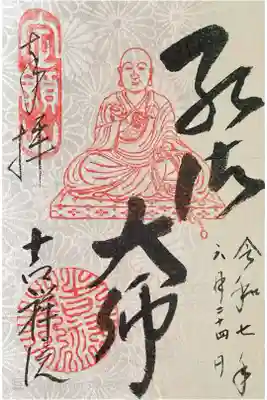 令和七年
六月二十四日
弘法
大師
奉拝
吉祥院